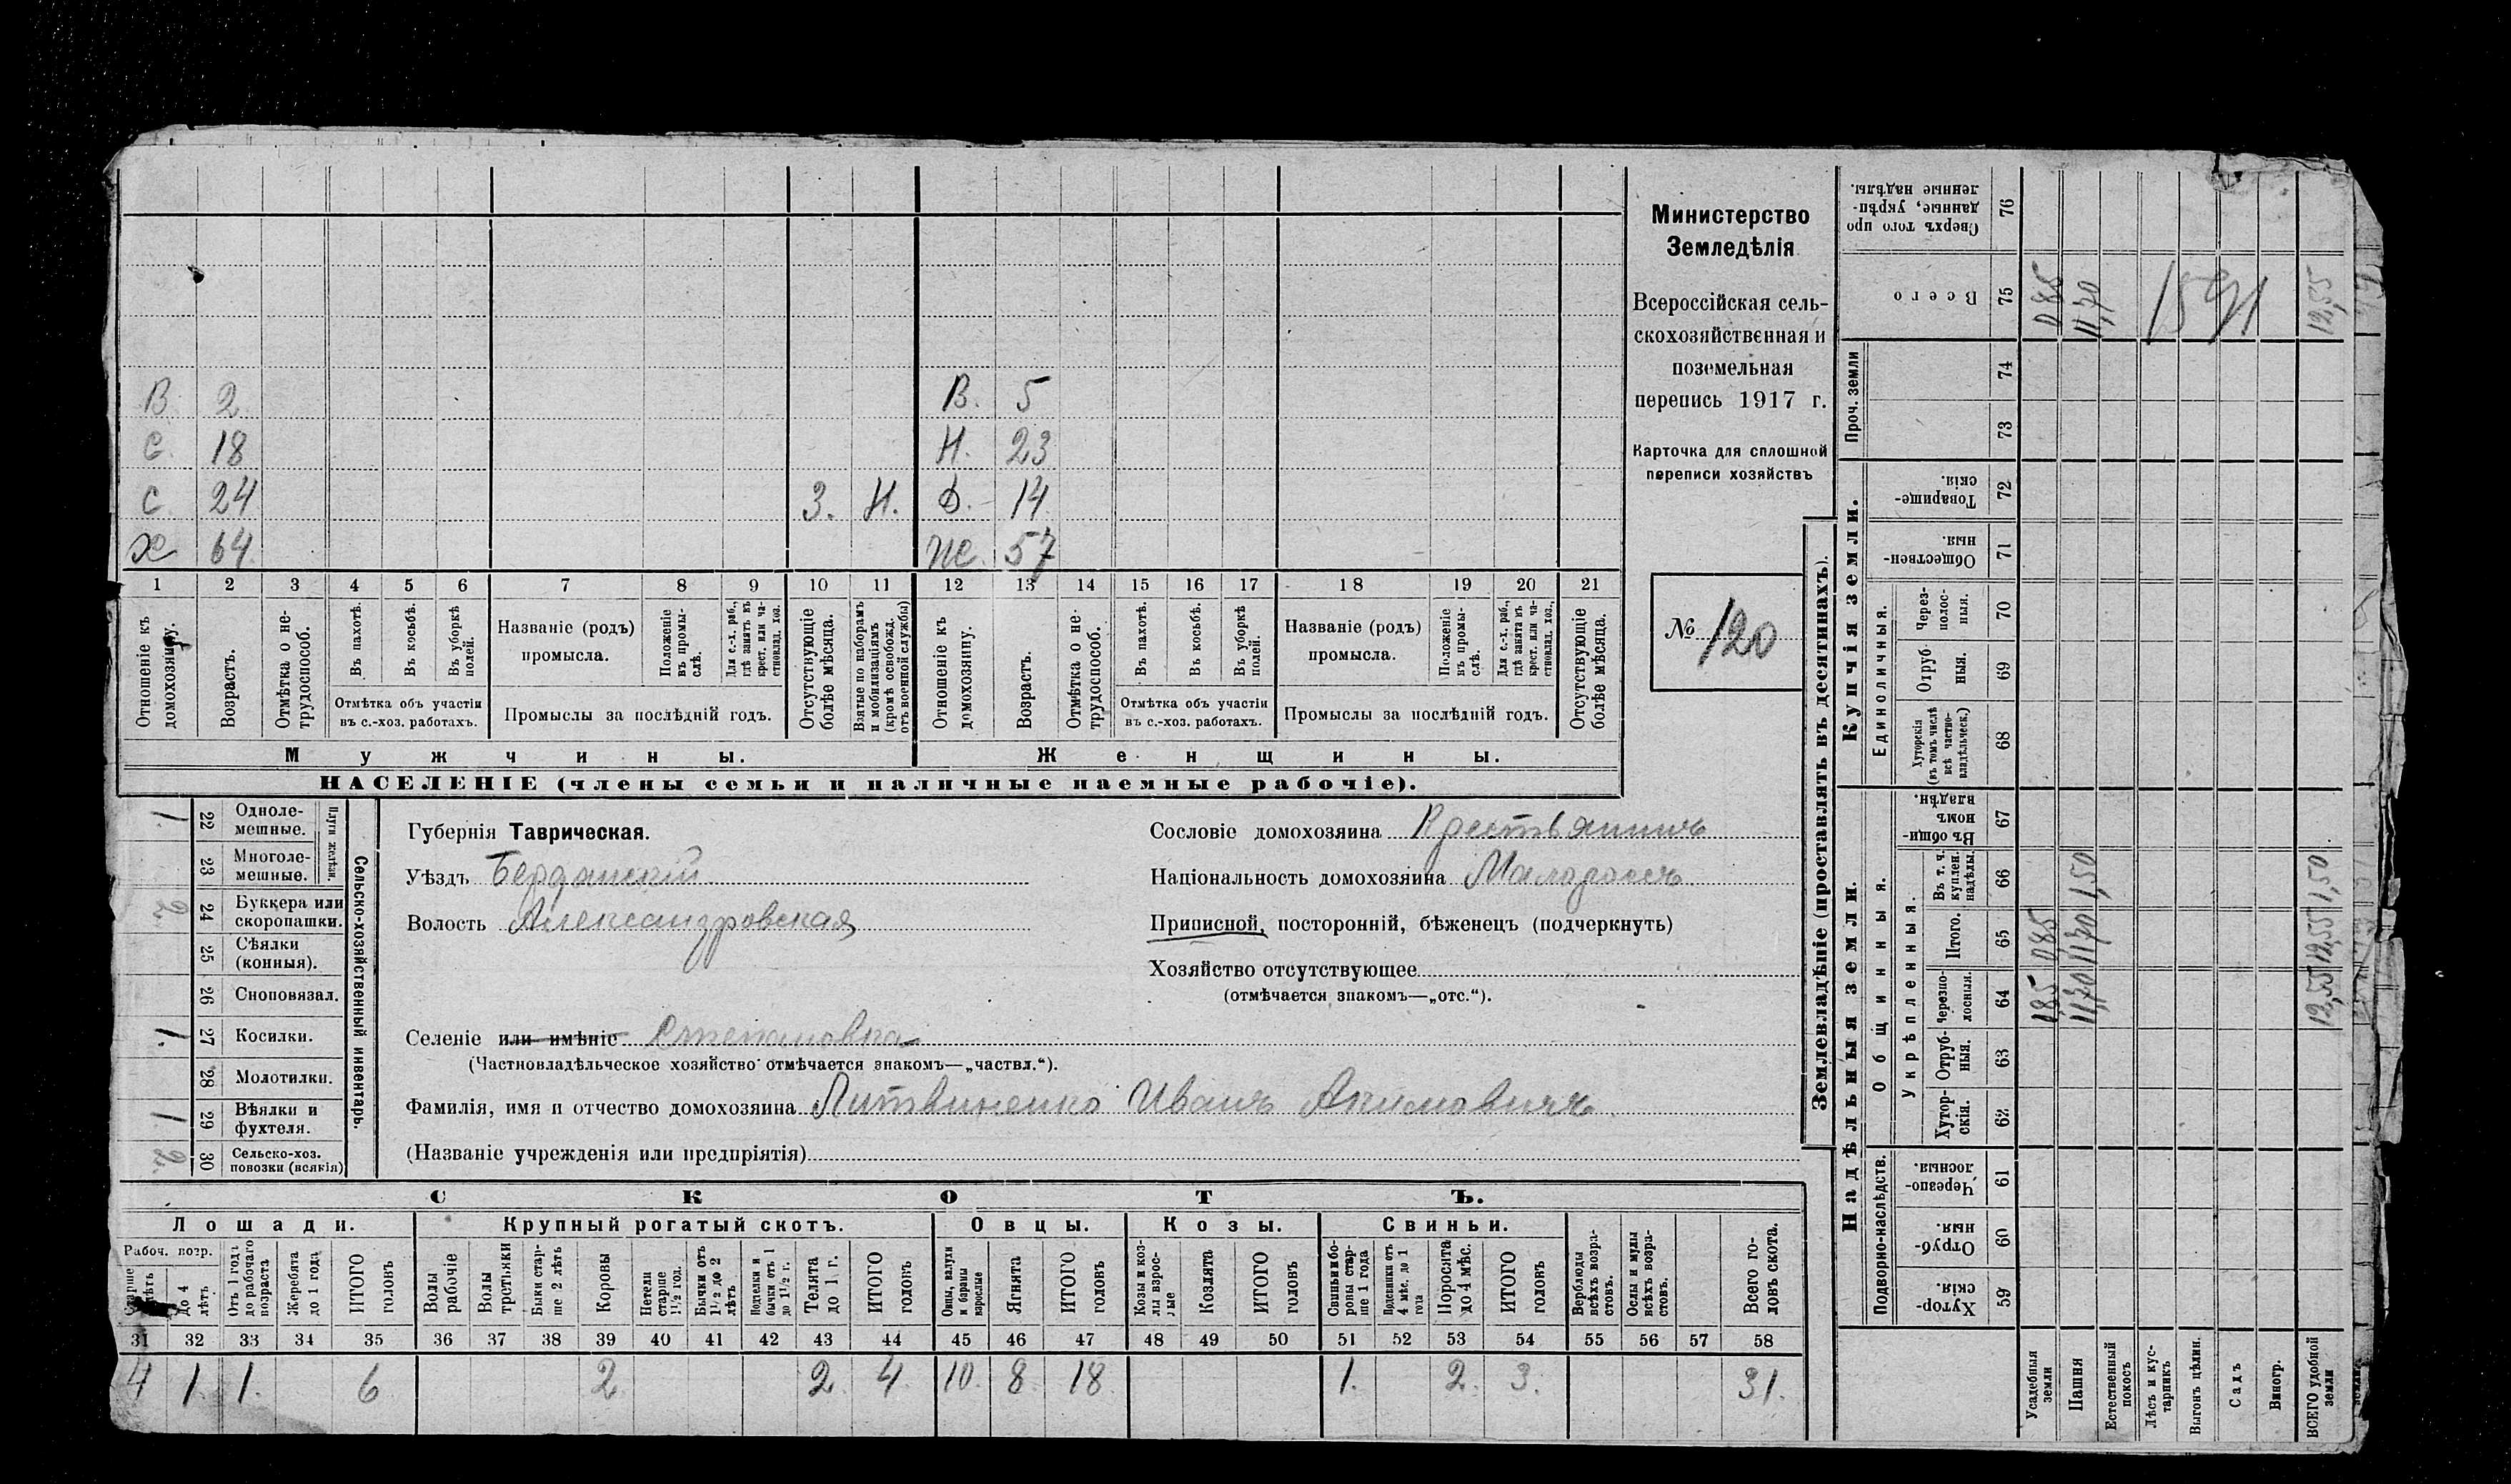 В. 2 В. 5
С. 18 Н. 23
С 24 3. Н. Д. 14
Х 64 Ж. 57
1 2 3 4 5 6 7 8 9 10 11 12 13 14 15 16 17 18 19 20 21
Отношеніе къ домохозяину.
Возрастъ.
Отмѣтка о не-трудоспособ.
Въ пахотѣ.
Въ косьбѣ.
Въ уборкѣ полей.
Отмѣтка объ участіи
въ с.-хоз. работахъ.
Названіе (родъ)
промысла.
Положеніе въ промы-слѣ.
Для с.-х. раб., гдѣ занятъ въ крест. или ча-стновлад. хоз.
Промыслы за послѣдній годъ.
Отсутствующіе болѣе мѣсяца.
Взятые по наборамъ и мобилизаціямъ (кромѣ освобожд. отъ военной службы)
Отношеніе къ домохозяину.
Возрастъ.
Отмѣтка о не-трудоспособ.
Въ пахотѣ.
Въ косьбѣ.
Въ уборкѣ полей.
Отмѣтка объ участіи
въ с.-хоз. работахъ.
Названіе (родъ)
промысла.
Положеніе въ промы-слѣ.
Для с.-х. раб., гдѣ занята въ крест. или ча-стновлад. хоз.,
Промыслы за послѣдній годъ.
Отсутствующіе болѣе мѣсяца.
Мужчины. Женщины.
НАСЕЛЕНІЕ (члены семьи и наличные наемные рабочіе).
Министерство
Земледѣлія
Всероссійская сель-
скохозяйственная и
поземельная
перепись 1917 г.
Карточка для сплошной
переписи хозяйствъ
№ 120
Сельско-хозяйственный инвентарь.
Плуги желѣзн.
1. 22 Одноле-мешные.
23 Многоле-мешные.
2. 24 Буккера или скоропашки.
25 Сѣялки (конныя).
26 Сноповязал.
1. 27 Косилки.
28 Молотилки.
1 29 Вѣялки и фухтеля.
2. 30 Сельско-хоз. повозки (всякія)
Губернія Таврическая.
Уѣздъ Бердянскій
Волость Александровская
Сословіе домохозяина Крестьянинъ
Національность домохозяина Малороссъ
Приписной, посторонній, бѣженецъ (подчеркнуть)
Хозяйство отсутствующее
(отмѣчается знакомъ—„отс.“).
Селеніе или имѣніе Степановка
(Частновладѣльческое хозяйство отмѣчается знакомъ—„частвл.“).
Фамилія, имя и отчество домохозяина Литвиненко Иванъ Акимовичъ.
(Названіе учрежденія или предпріятія)
СКОТЪ.
Лошади. Крупный рогатый скотъ. Овцы. Козы. Свиньи.
Рабоч. возр.
Старше лѣтъ
До 4 лѣтъ
Отъ 1 года до рабочаго возраста
Жеребята до 1 года
ИТОГО головъ
Волы рабочіе
Волы третьяки
Быки стар-ше 2 лѣтъ
Коровы
Нетели старше 1½ год.
Бычки отъ 1½ до 2 лѣтъ
Подтелки и бычки отъ 1 до 1½ г.
Телята до 1 г.
ИТОГО головъ
Овцы, валухи и бараны взрослые
Ягнята
ИТОГО головъ
Козы и коз-лы взрос-лые
Козлята
ИТОГО головъ
Свиньи и бо-ровы стар-ше 1 года
Подсвинки отъ 4 мѣс. до 1 года
Поросята до 4 мѣс.
ИТОГО головъ
Верблюды всѣхъ возра-стовъ.
Ослы и мулы всѣхъ возра-стовъ.
Всего го-ловъ скота.
31 32 33 34 35 36 37 38 39 40 41 42 43 44 45 46 47 48 49 50 51 52 53 54 55 56 57 58
4 1. 1. 6 2 2. 4. 10. 8. 18. 1. 2. 3. 31.
Землевладѣніе (проставлять въ десятинахъ).
Надѣльныя земли. Купчія земли. Проч. земли
Подворно-наслѣдств. Общинныя. Укрѣпленныя. Единоличныя.
Хутор-скія. 59
Отруб-ныя. 60
Черезпо-лосныя. 61
Хутор-скія. 62
Отруб-ныя. 63
Черезпо-лосныя. 64
Итого. 65
Въ т. ч. куплен. надѣлы. 66
Въ общи-номъ владѣн. 67
Хуторскія (въ томъ числѣ всѣ частно-владѣльческ.) 68
Отруб-ныя. 69
Через-полос-ныя. 70
Обществен-ныя. 71
Товарище-скія. 72
73
74
Всего 75
Сверхъ того про-данные, укрѣп-ленные надѣлы. 76
Усадебныя земли 0,85 0,85 0,85
Пашня 11,70 11,70 1,50 11,70
Естественный покосъ
Лѣсъ и кус-тарникъ
Выгонъ цѣлин.
Садъ
Виногр.
ВСЕГО удобной земли 12,55 12,55 1,50 12,55
1591